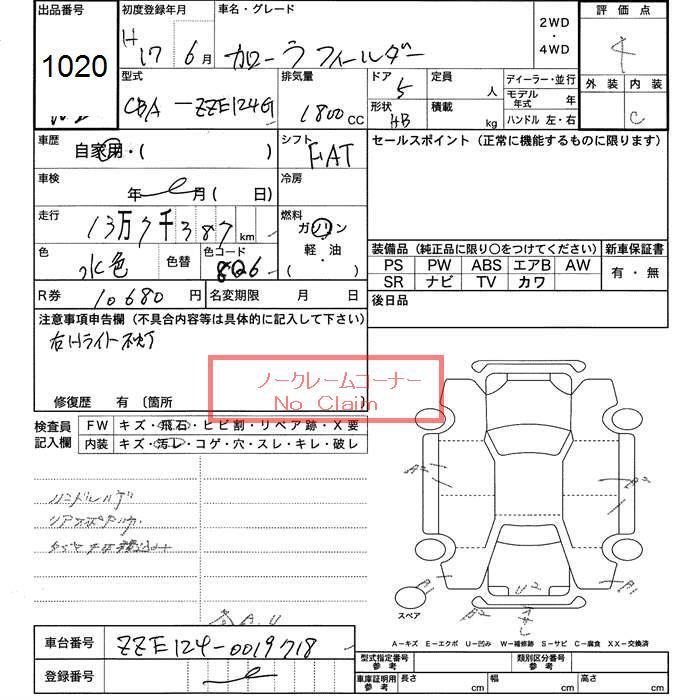 出品番号 初度登録年月 車名・グレード 2WD ・ 4WD 評価点
1020 H17 6月 カローラフィールダー 4
型式 排気量 ドア 定員 ディーラー・並行 外装 内装
CBA-ZZE124G 1800CC 5 人 モデル年式 年 C
形状 HB 積載 kg ハンドル 左・右
車歴 シフト セールスポイント（正常に機能するものに限ります）
自家用・( ) FAT
車検 冷房
年 月 ( 日)
走行 燃料
13万7千387km ガソリン
色 色替 色コード 軽・油
水色 8Q6 ( )
装備品（純正品に限り○をつけてください） 新車保証書
PS PW ABS エアB AW 有・無
SR ナビ TV カワ
R券 10680円 名変期限 月 日 後日品
注意事項申告欄（不具合内容等は具体的に記入して下さい）
右Hライト不灯
ノークレームコーナー
No Claim
修復歴 有 〔箇所
検査員記入欄 FW キズ・飛石・ヒビ割・リペア跡・X要
内装 キズ・汚レ・コゲ・穴・スレ・キレ・破レ
A2
A1
U2
A1
スペア
A.U
A－キズ E－エクボ U－凹み W－補修跡 S－サビ C－腐食 XX－交換済
車台番号 ZZE124-0019718
登録番号
型式指定番号 参考 類別区分番号 参考
車庫証明用 参考 長さ cm 幅 cm 高さ cm